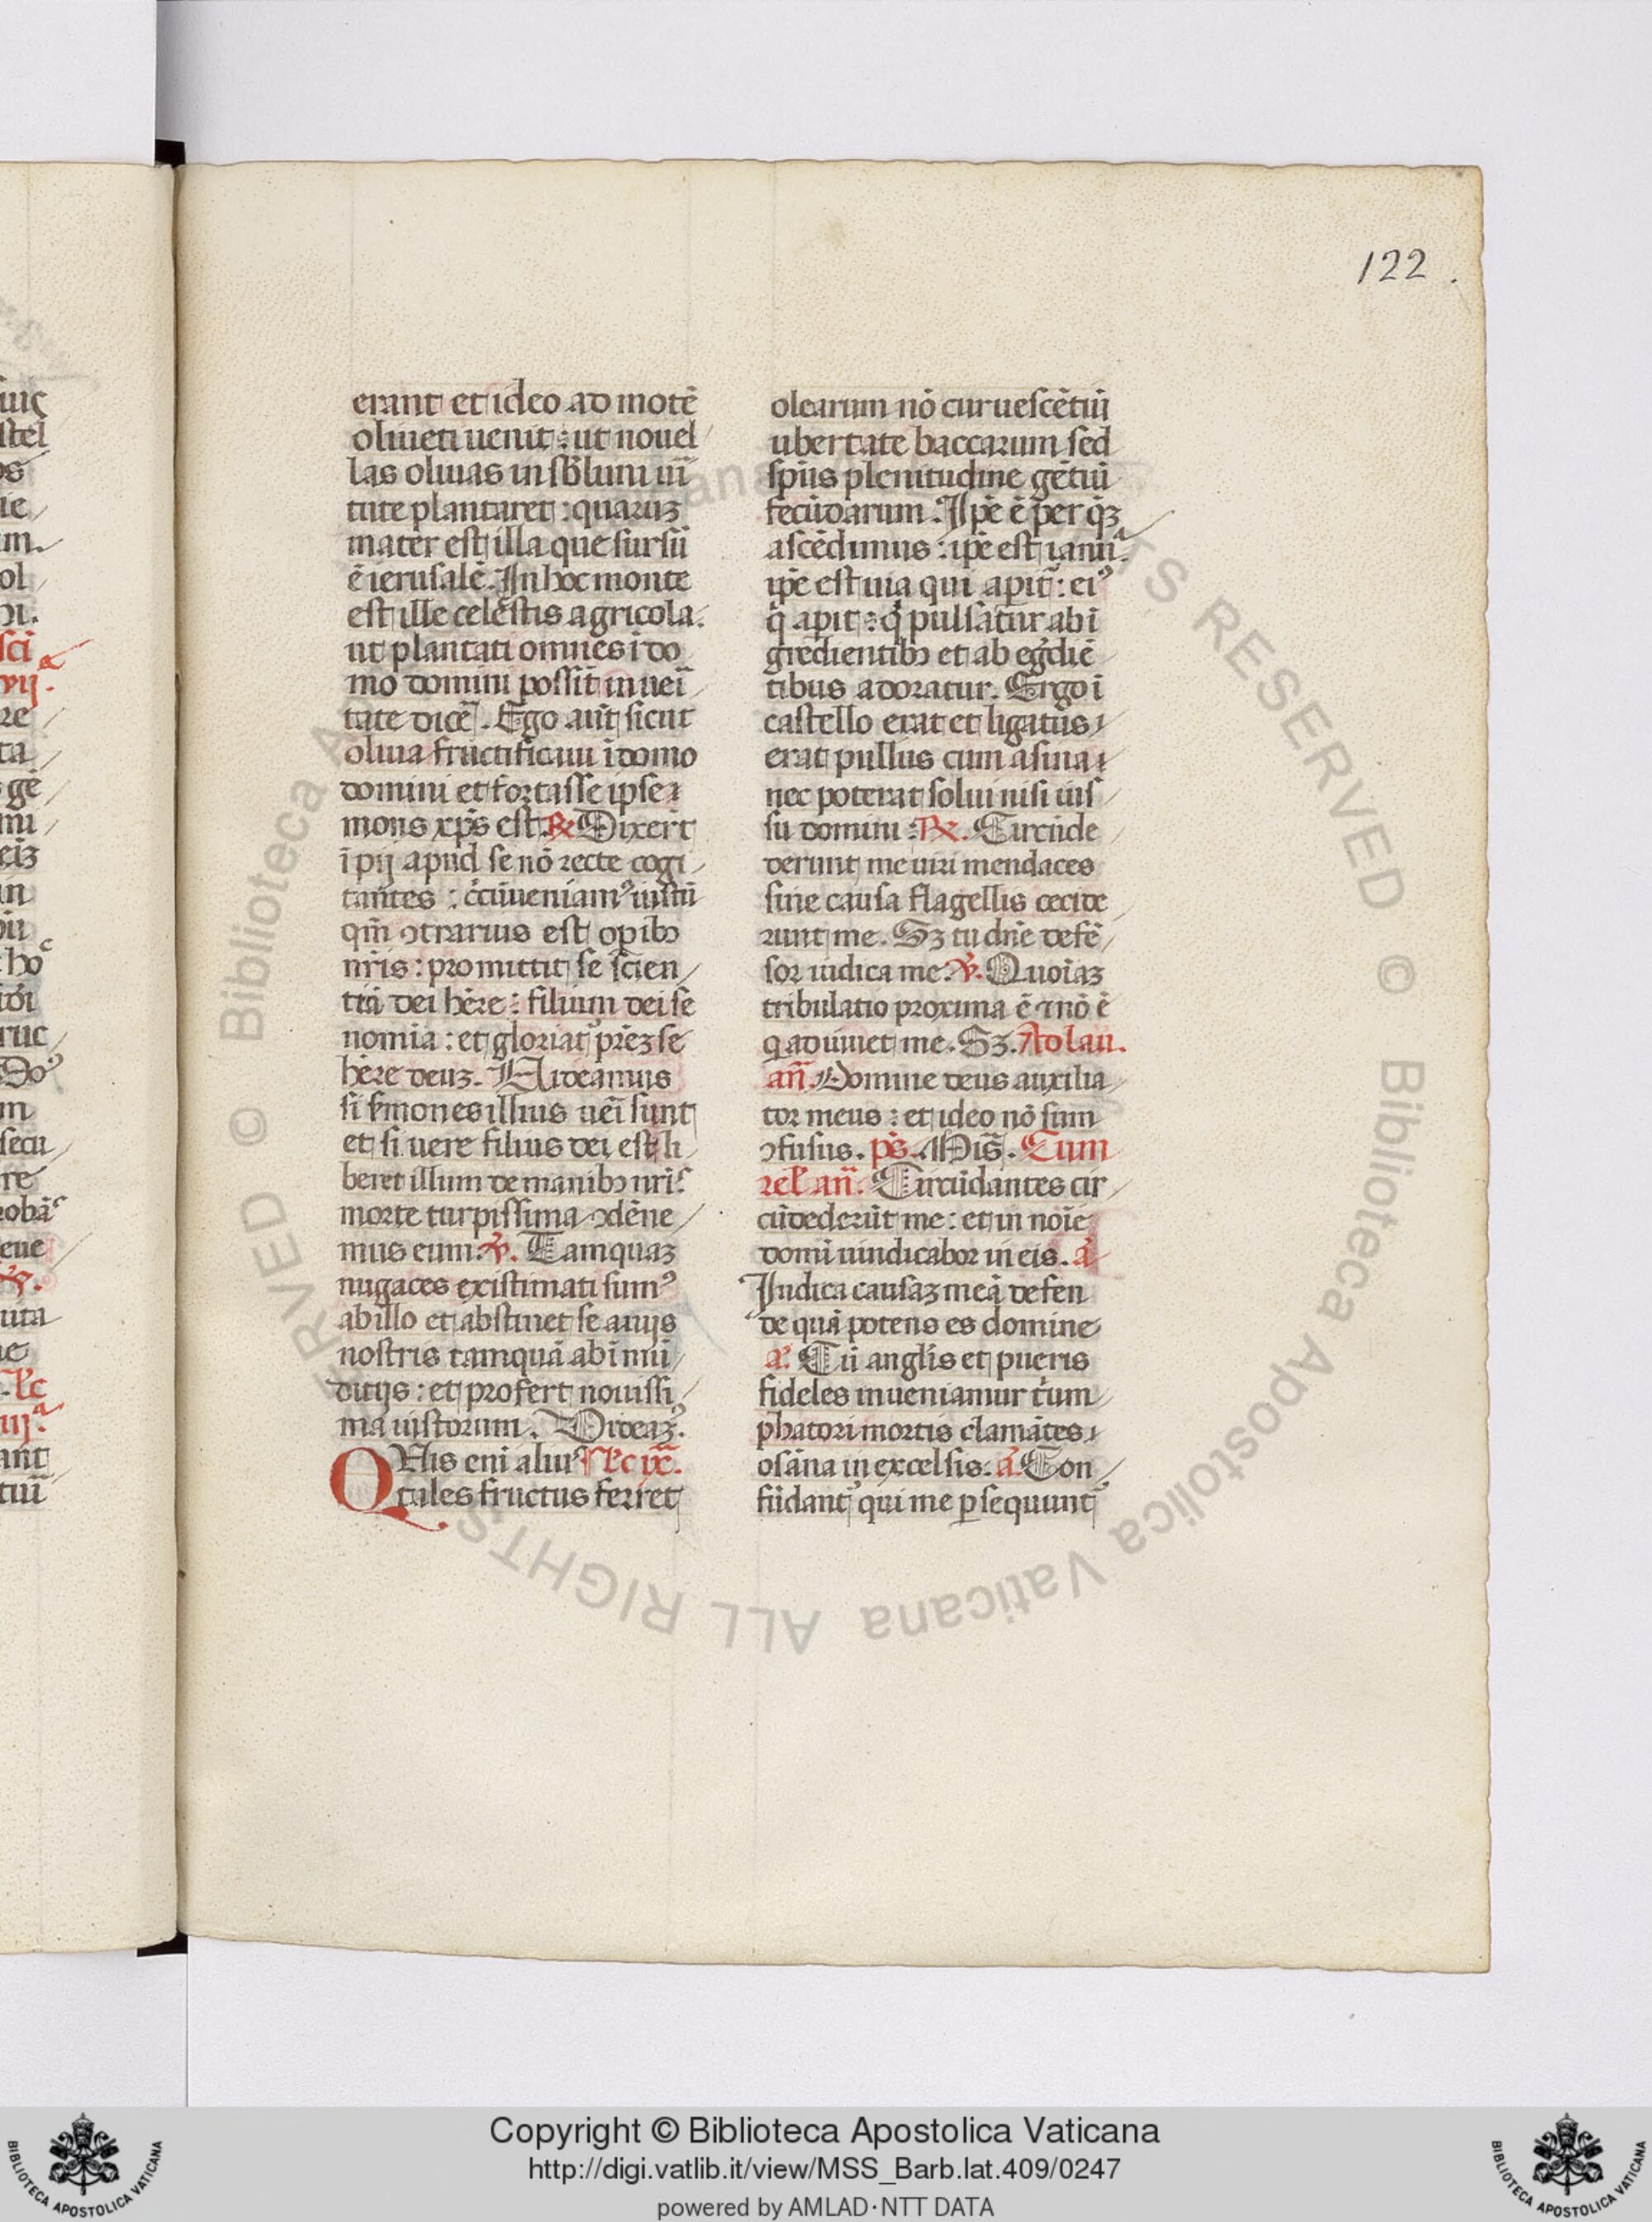 122.
erant et ideo ad montē
oliueti uenit: ut nouel
las oliuas in sb̄limi uir̄
tute plantaret: quaruȝ
mater est illa que sursū
ē ierusalē. In hoc monte
est ille celestis agricola.
ut plantati omnes ī do
mo domini possīt in uei̅
tate dicē. Ego aūt sicut
oliua fructificaui ī domo
domini et fortasse ipse ⁊
mons xp̄s est. ℟ Dixert̄
īpij apud se nō recte cogi
tantes: cc̄ūueniamꝰ iustū
qm̄ ꝯtrarius est opibꝫ
nr̄is: promittit se scien
tiā dei hēre: filium dei se
nomīa: et gloriatᷣ prēȝ se
hēre deuȝ. Uideamus
si ẜmones illius uei̅ sunt
et si uere filius dei est li
beret illum de manibꝫ nr̄is
morte turpissima ꝯdēne
mus eum. ℣. Tamquaȝ
nugaces existimati sumꝰ
ab illo et abstinet se a uijs
nostris tamquā ab īmū
ditijs: et profert nouissi
ma iustorum. Uideaȝꝰ.
QUis eni alius lc̄ ix̄.
tales fructus ferret
olearum nō curuescētiū
ubertate baccarum sed
sp̄us plenitudine gētiū
fecūdarum. Ip̄e ē per q̄ȝ
ascēdimus: ip̄e est ianua
ip̄e est uia qui apit̄: eiꝰ
q̄ apit: q̄ pulsatur ab ī
gredientibꝫ et ab egᷣdiē
tibus adoratur. Ergo ī
castello erat et ligatus ⁊
erat pullus cum asina ⁊
nec poterat solui nisi ius
su domini: ℟. Circūde
derunt me uiri mendaces
sine causa flagellis cecide
runt me. Sȝ tu dn̄e defē
sor uidica me. ℣. Quoīaȝ
tribulatio proxima ē ⁊ nō ē
q adiuuet me. Sȝ. Ad lau.
an̄. Domine deus auxilia
tor meus: et ideo nō sum
ꝯfusus. ps̄. Mis̄. Cum
rel̄. an̄. Circūdantes cir
cūdederūt me: et in noīe
domī uindicabor in eis. a᷎
Iudica causaȝ meā defen
de quā potens es domine
a᷎. Cū angl̄is et pueris
fideles inueniamur tͥum
phatori mortis clamātes ⁊
osāna in excelsis. a᷎. Con
fūdantᷣ qui me ꝑsequuntᷣ
Copyright © Biblioteca Apostolica Vaticana
http://digi.vatlib.it/view/MSS_Barb.lat.409/0247
powered by AMLAD·NTT DATA